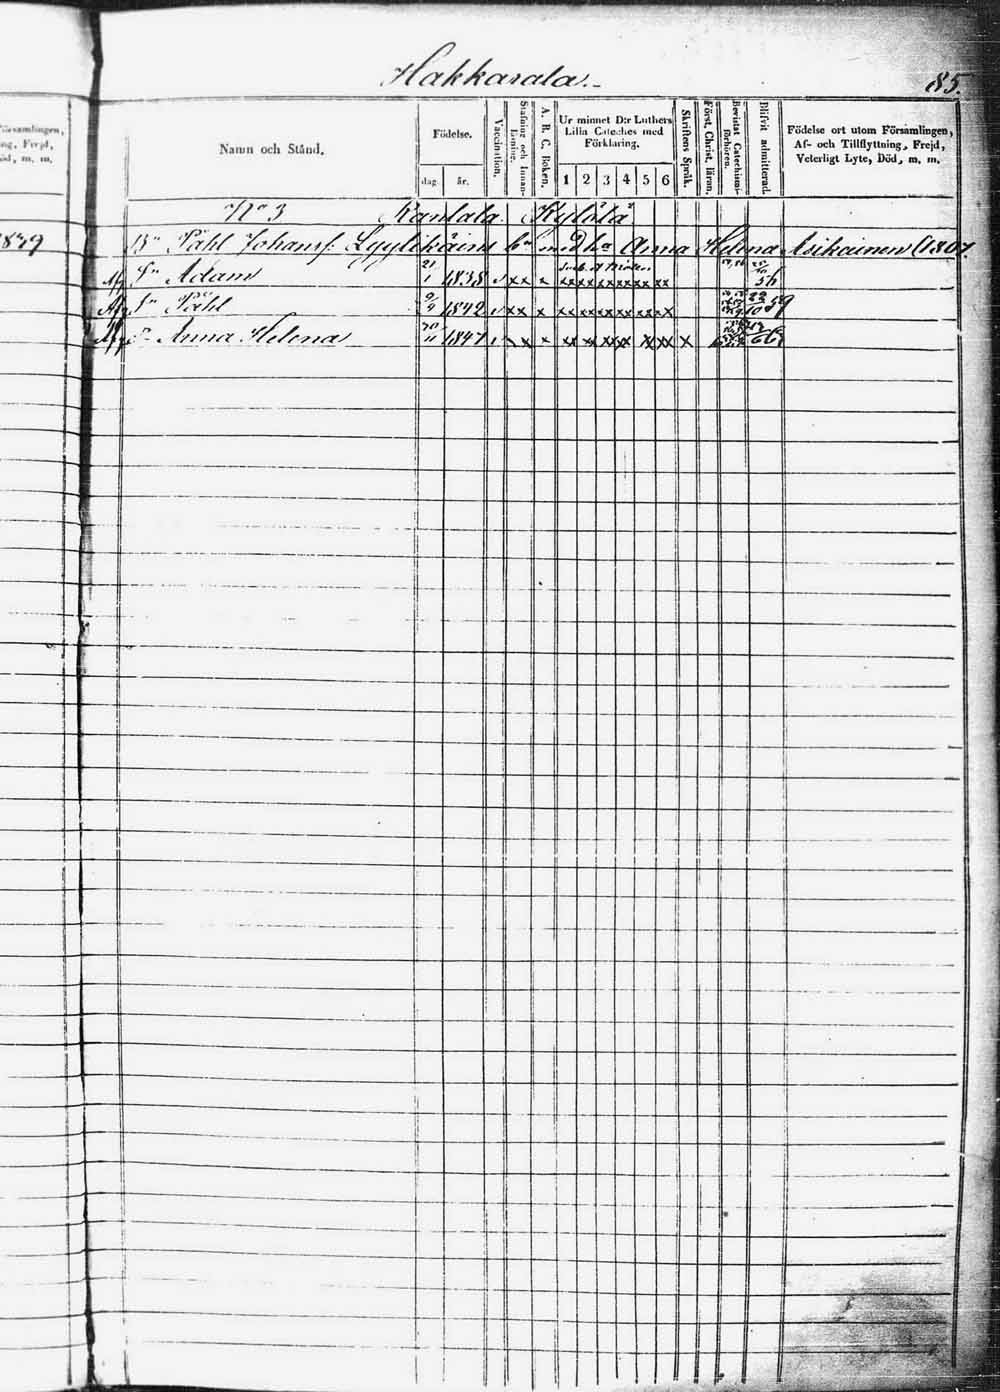 Hakkarala. 85.
Församlingen,
ng, Frejd,
öd, m. m.
Namn och Stånd.
Födelse.
dag. år.
Vaccination.
Stafning och Innan-läsning.
A. B. C. Boken.
Ur minnet D:r Luthers
Lilla Cateches med
Förklaring.
1 2 3 4 5 6
Skriftens Språk.
Först. Christ. läran.
Bevistat Catechismi-förhören.
Blifvit admitterad.
Födelse ort utom Församlingen,
Af- och Tillflyttning, Frejd,
Veterligt Lyte, Död, m. m.
No 3 Kantala. Kylölä
1839
Bn Påhl Johansf. Lyylikäins bn med ha Anna Helena Asikainen 1807
Sn Adam 21/1 1838 x x x xx xx xx xx xx xx 56
Sn Påhl 9/9 1842 x x x xx xx xx xx xx xx 59
Anna Helena 30/11 1847 x x xx xx xx xx xx xx x 66